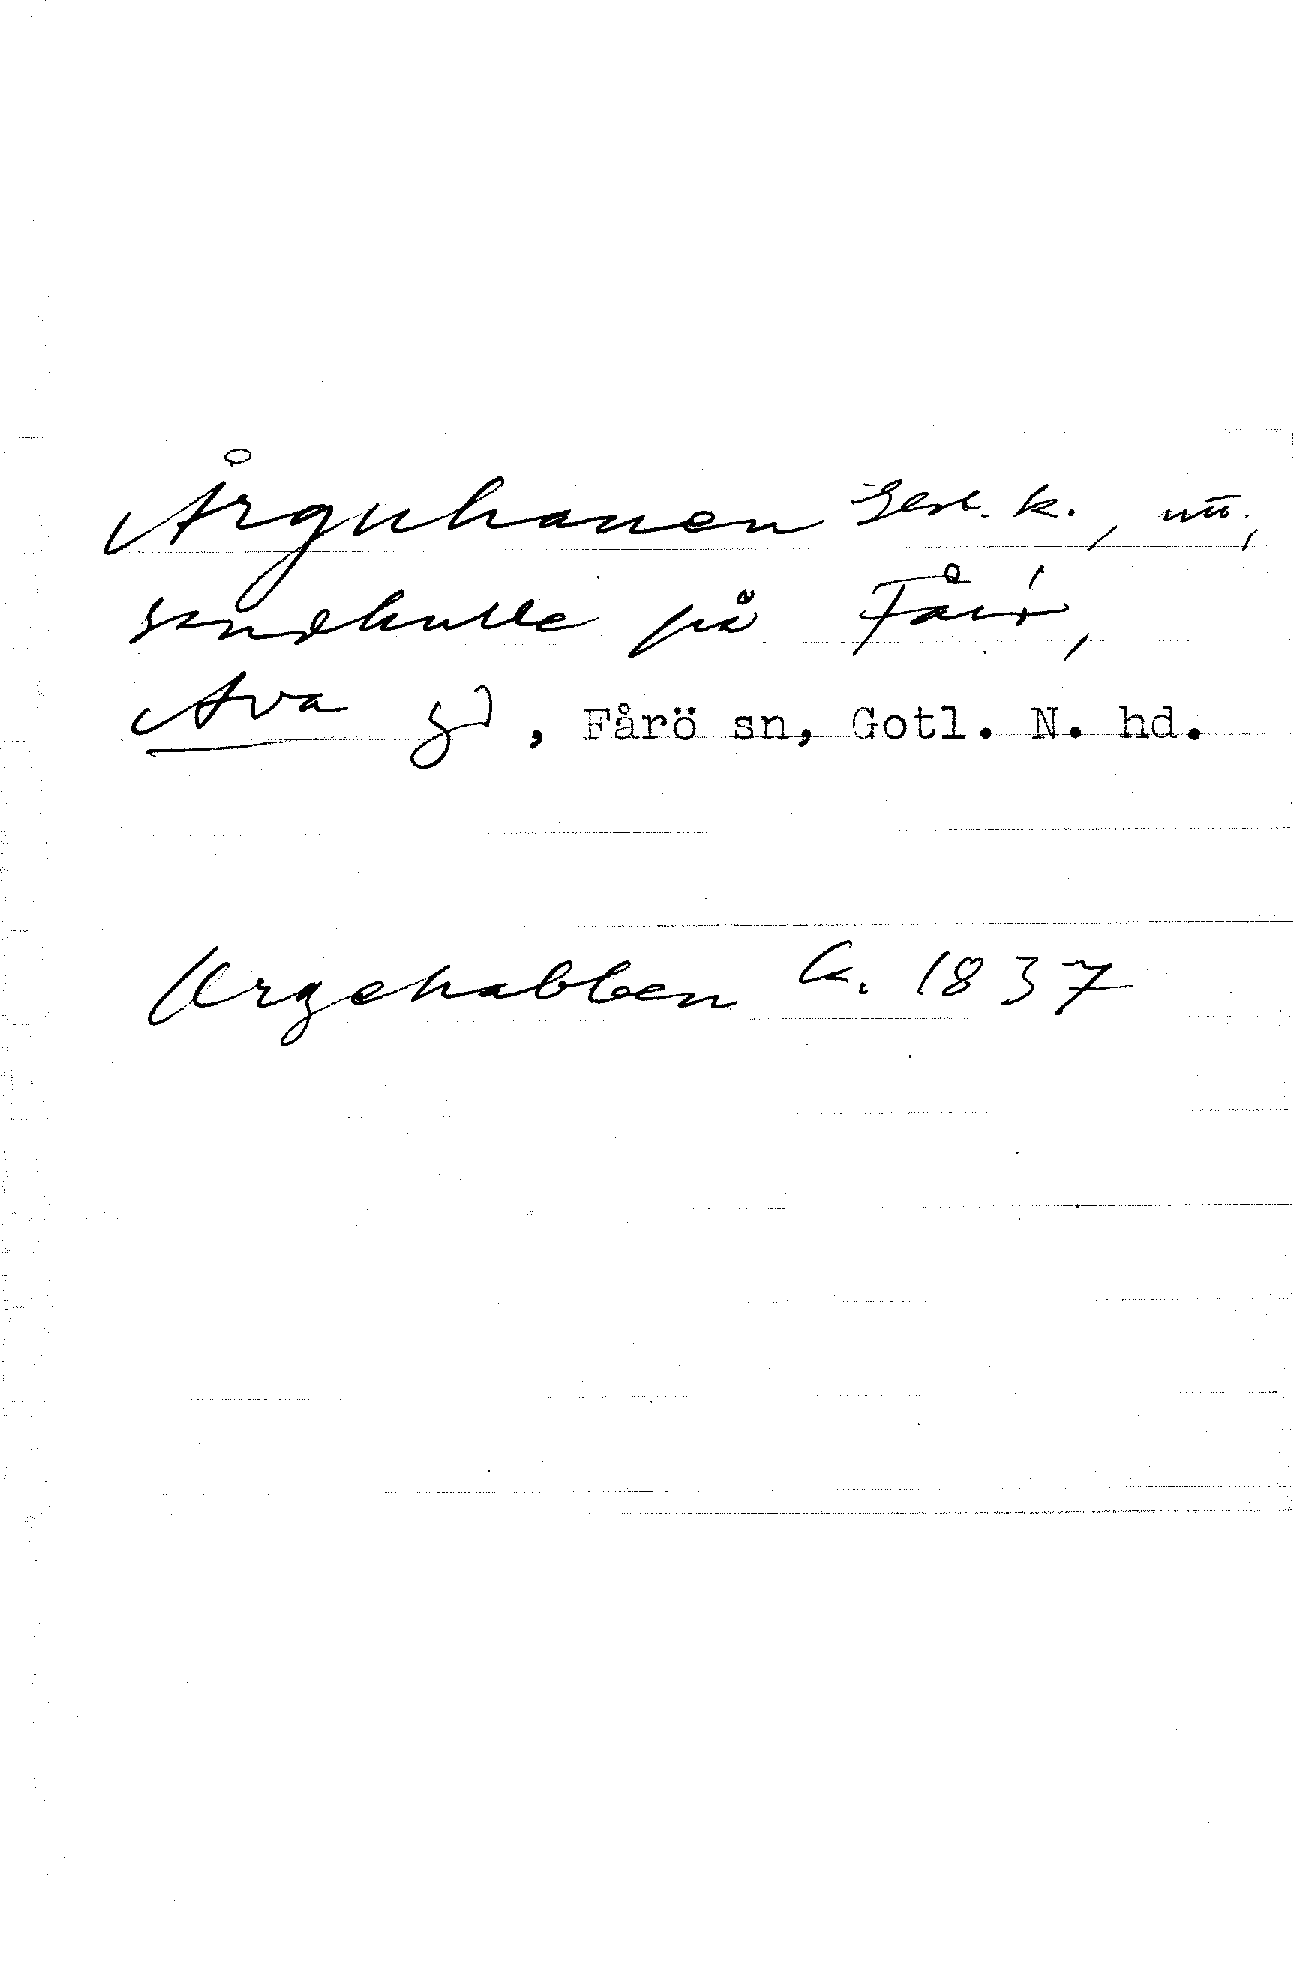 Årguhauen Gen. k., nu,
sandkulle på Fårö,
Ava gd, Fårö sn, Gotl. N. hd.
Argehabben k. 1837